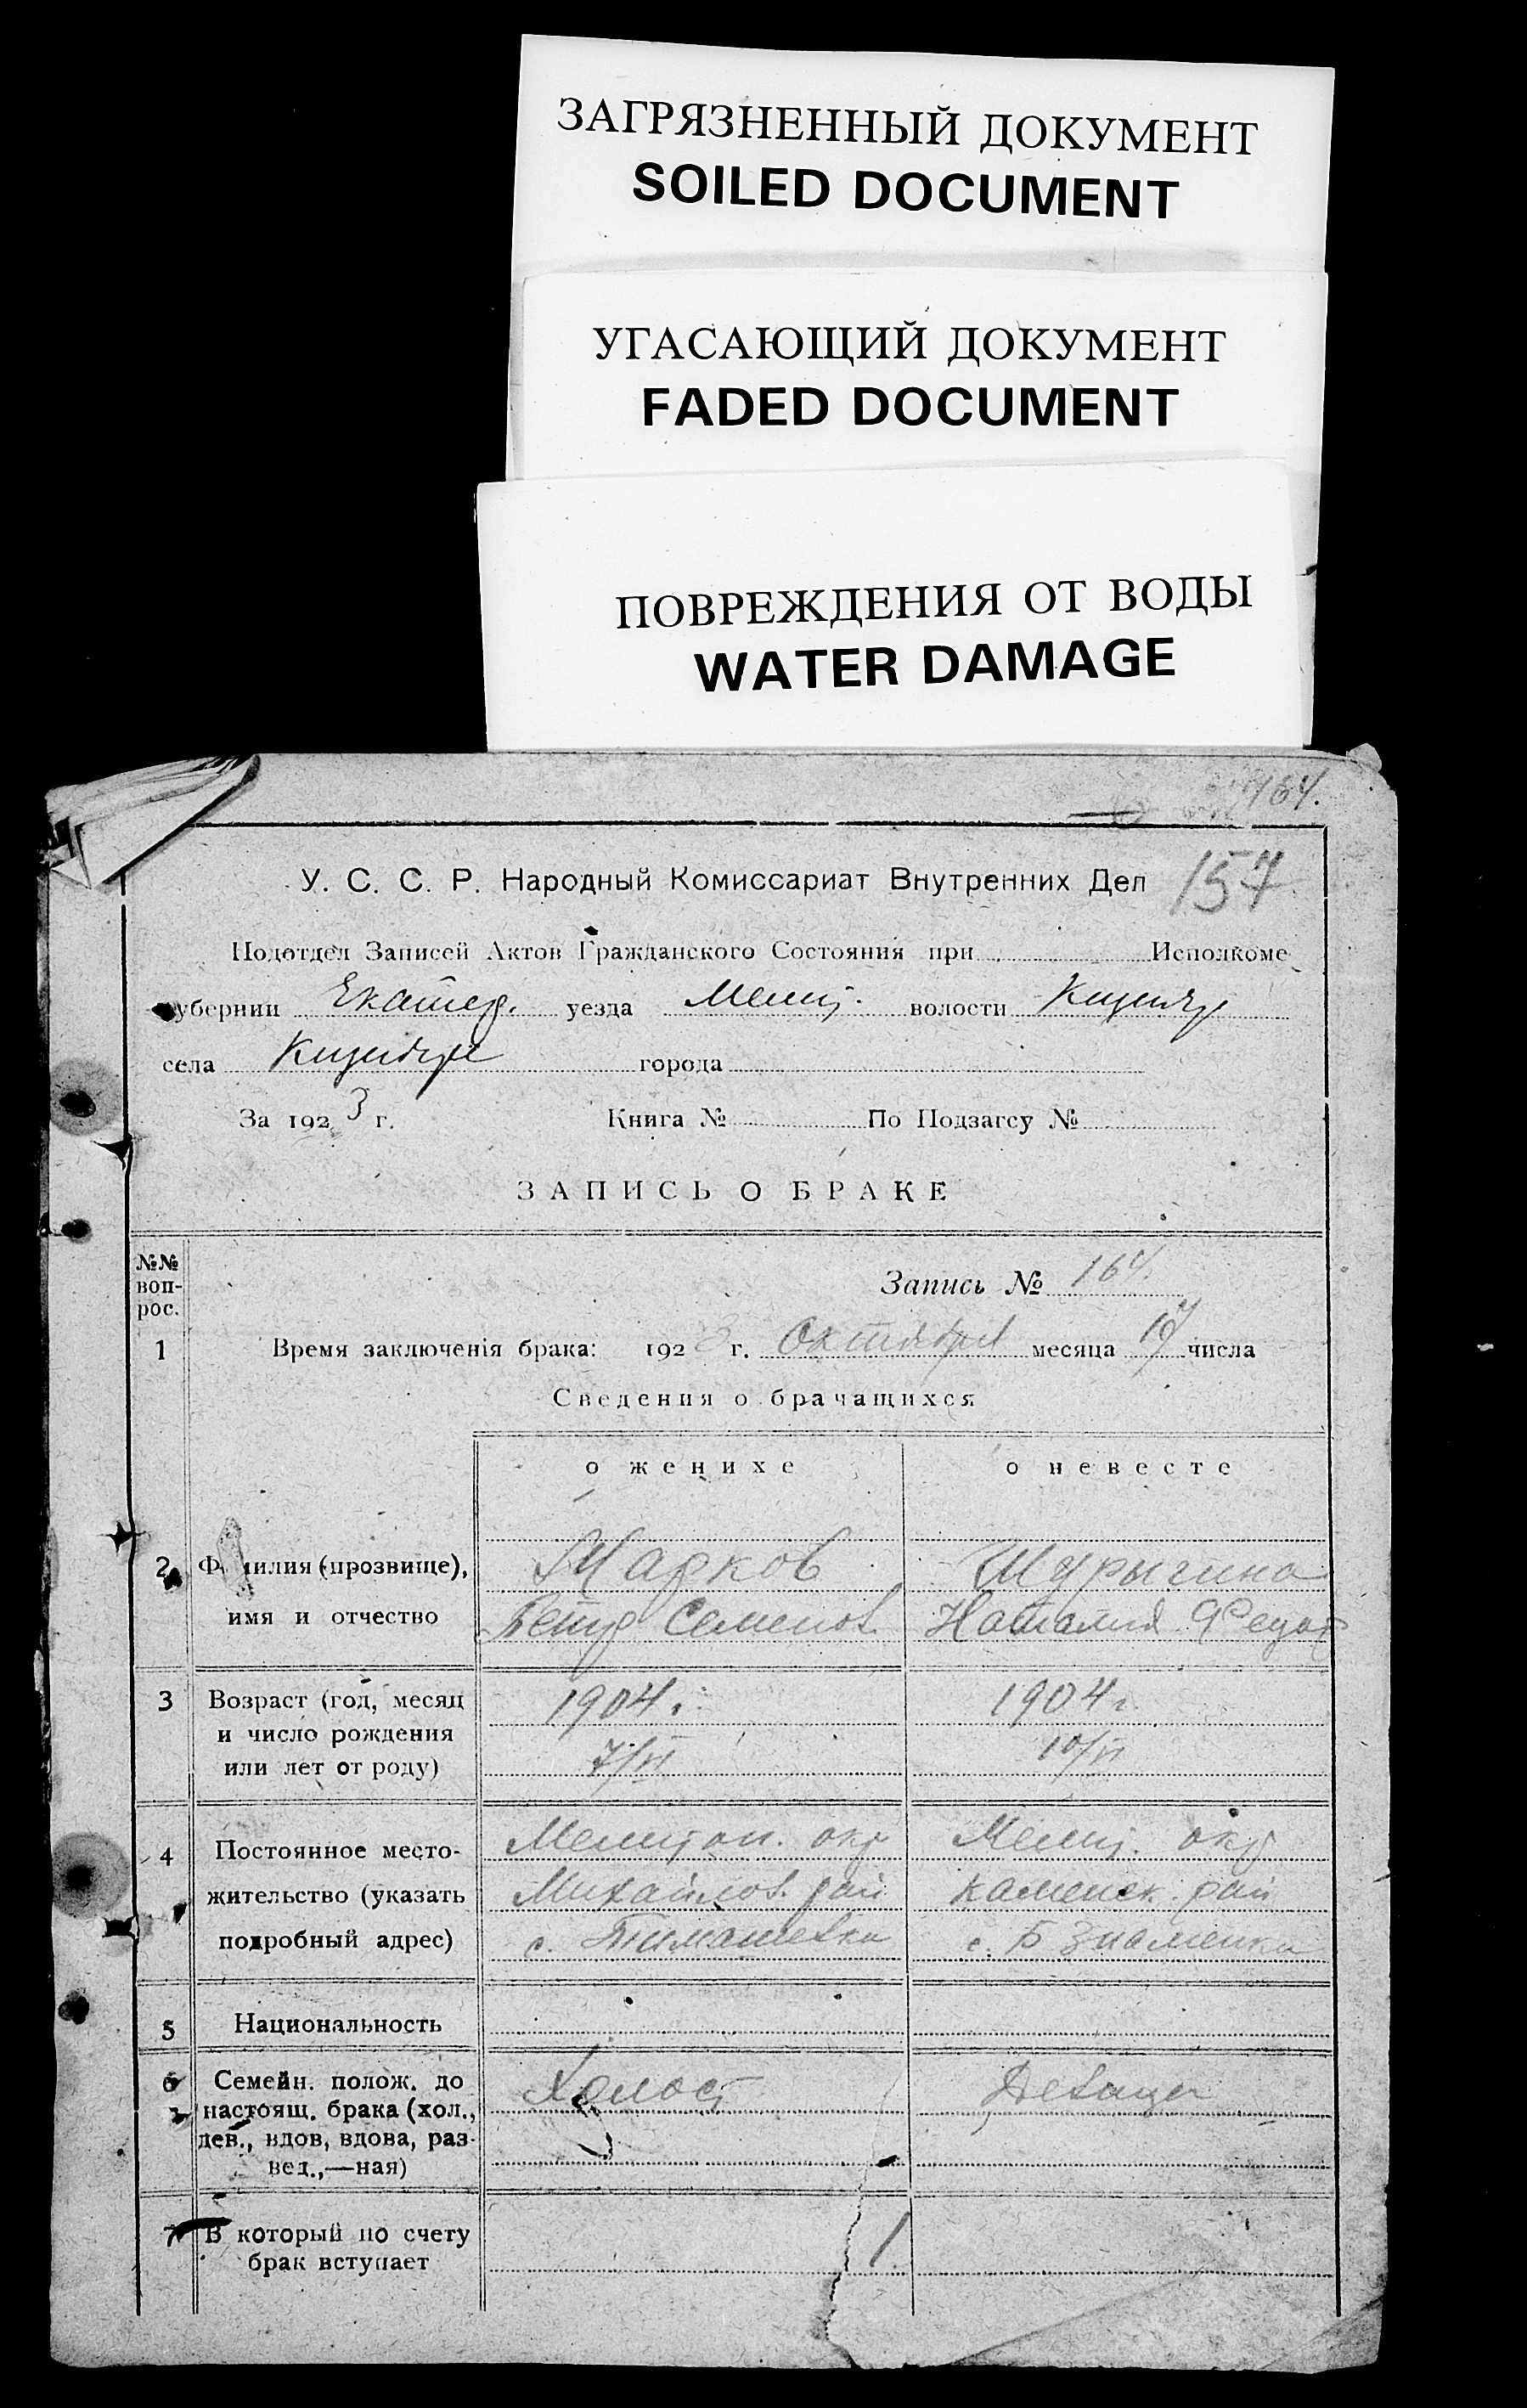 ЗАГРЯЗНЕННЫЙ ДОКУМЕНТ
SOILED DOCUMENT
УГАСАЮЩИЙ ДОКУМЕНТ
FADED DOCUMENT
ПОВРЕЖДЕНИЯ ОТ ВОДЫ
WATER DAMAGE
164.
У. С. С. Р. Народный Комиссариат Внутренних Дел 157
Подотдел Записей Актов Гражданского Состояния при Исполкоме
убернии Екатер. уезда Мелит. волости
села города
За 1923 г. Книга № По Подзагсу №
ЗАПИСЬ О БРАКЕ
№№ воп-рос.
Запись № 164.
1 Время заключенія брака: 1923 г. Октября месяца 17 числа
Сведения о брачащихся
о женихе о невесте
2 Фамилия (прозвище), Марков Шурыгина
имя и отчество Петр Семенов. Наталия Федор
3 Возраст (год, месяц 1904г. 1904г.
и число рождения
или лет от роду) 7/VI 10/VI
4 Постоянное место- Мелитоп. окр Мелит. окр
жительство (указать Михайлов. рай Каменск. рай
подробный адрес) с. Тимашевка с. Б Знаменка
5 Национальность
6 Семейн. полож. до Холост Девица
настоящ. брака (хол.,
дев., вдов, вдова, раз-
вед.,—ная)
7 В который по счету 1.
брак вступает